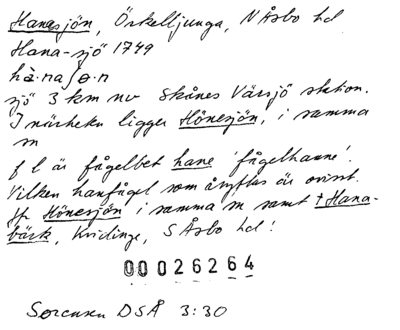 Hanasjön, Örkelljunga, N Åsbo hd
Hana-sjö 1749
hà·naʃø·n
sjö 3 km nv Skånes Värsjö station.
I närheten ligger Hönesjön, i samma
sn
f l är fågelbet hane 'fågelhanne'.
Vilken hanfågel som åsyftas är ovisst.
Jfr Hönesjön i samma sn samt † Hana-
bäck, Kvidinge, S Åsbo hd!
00026264
Sørensen DSÅ 3:30